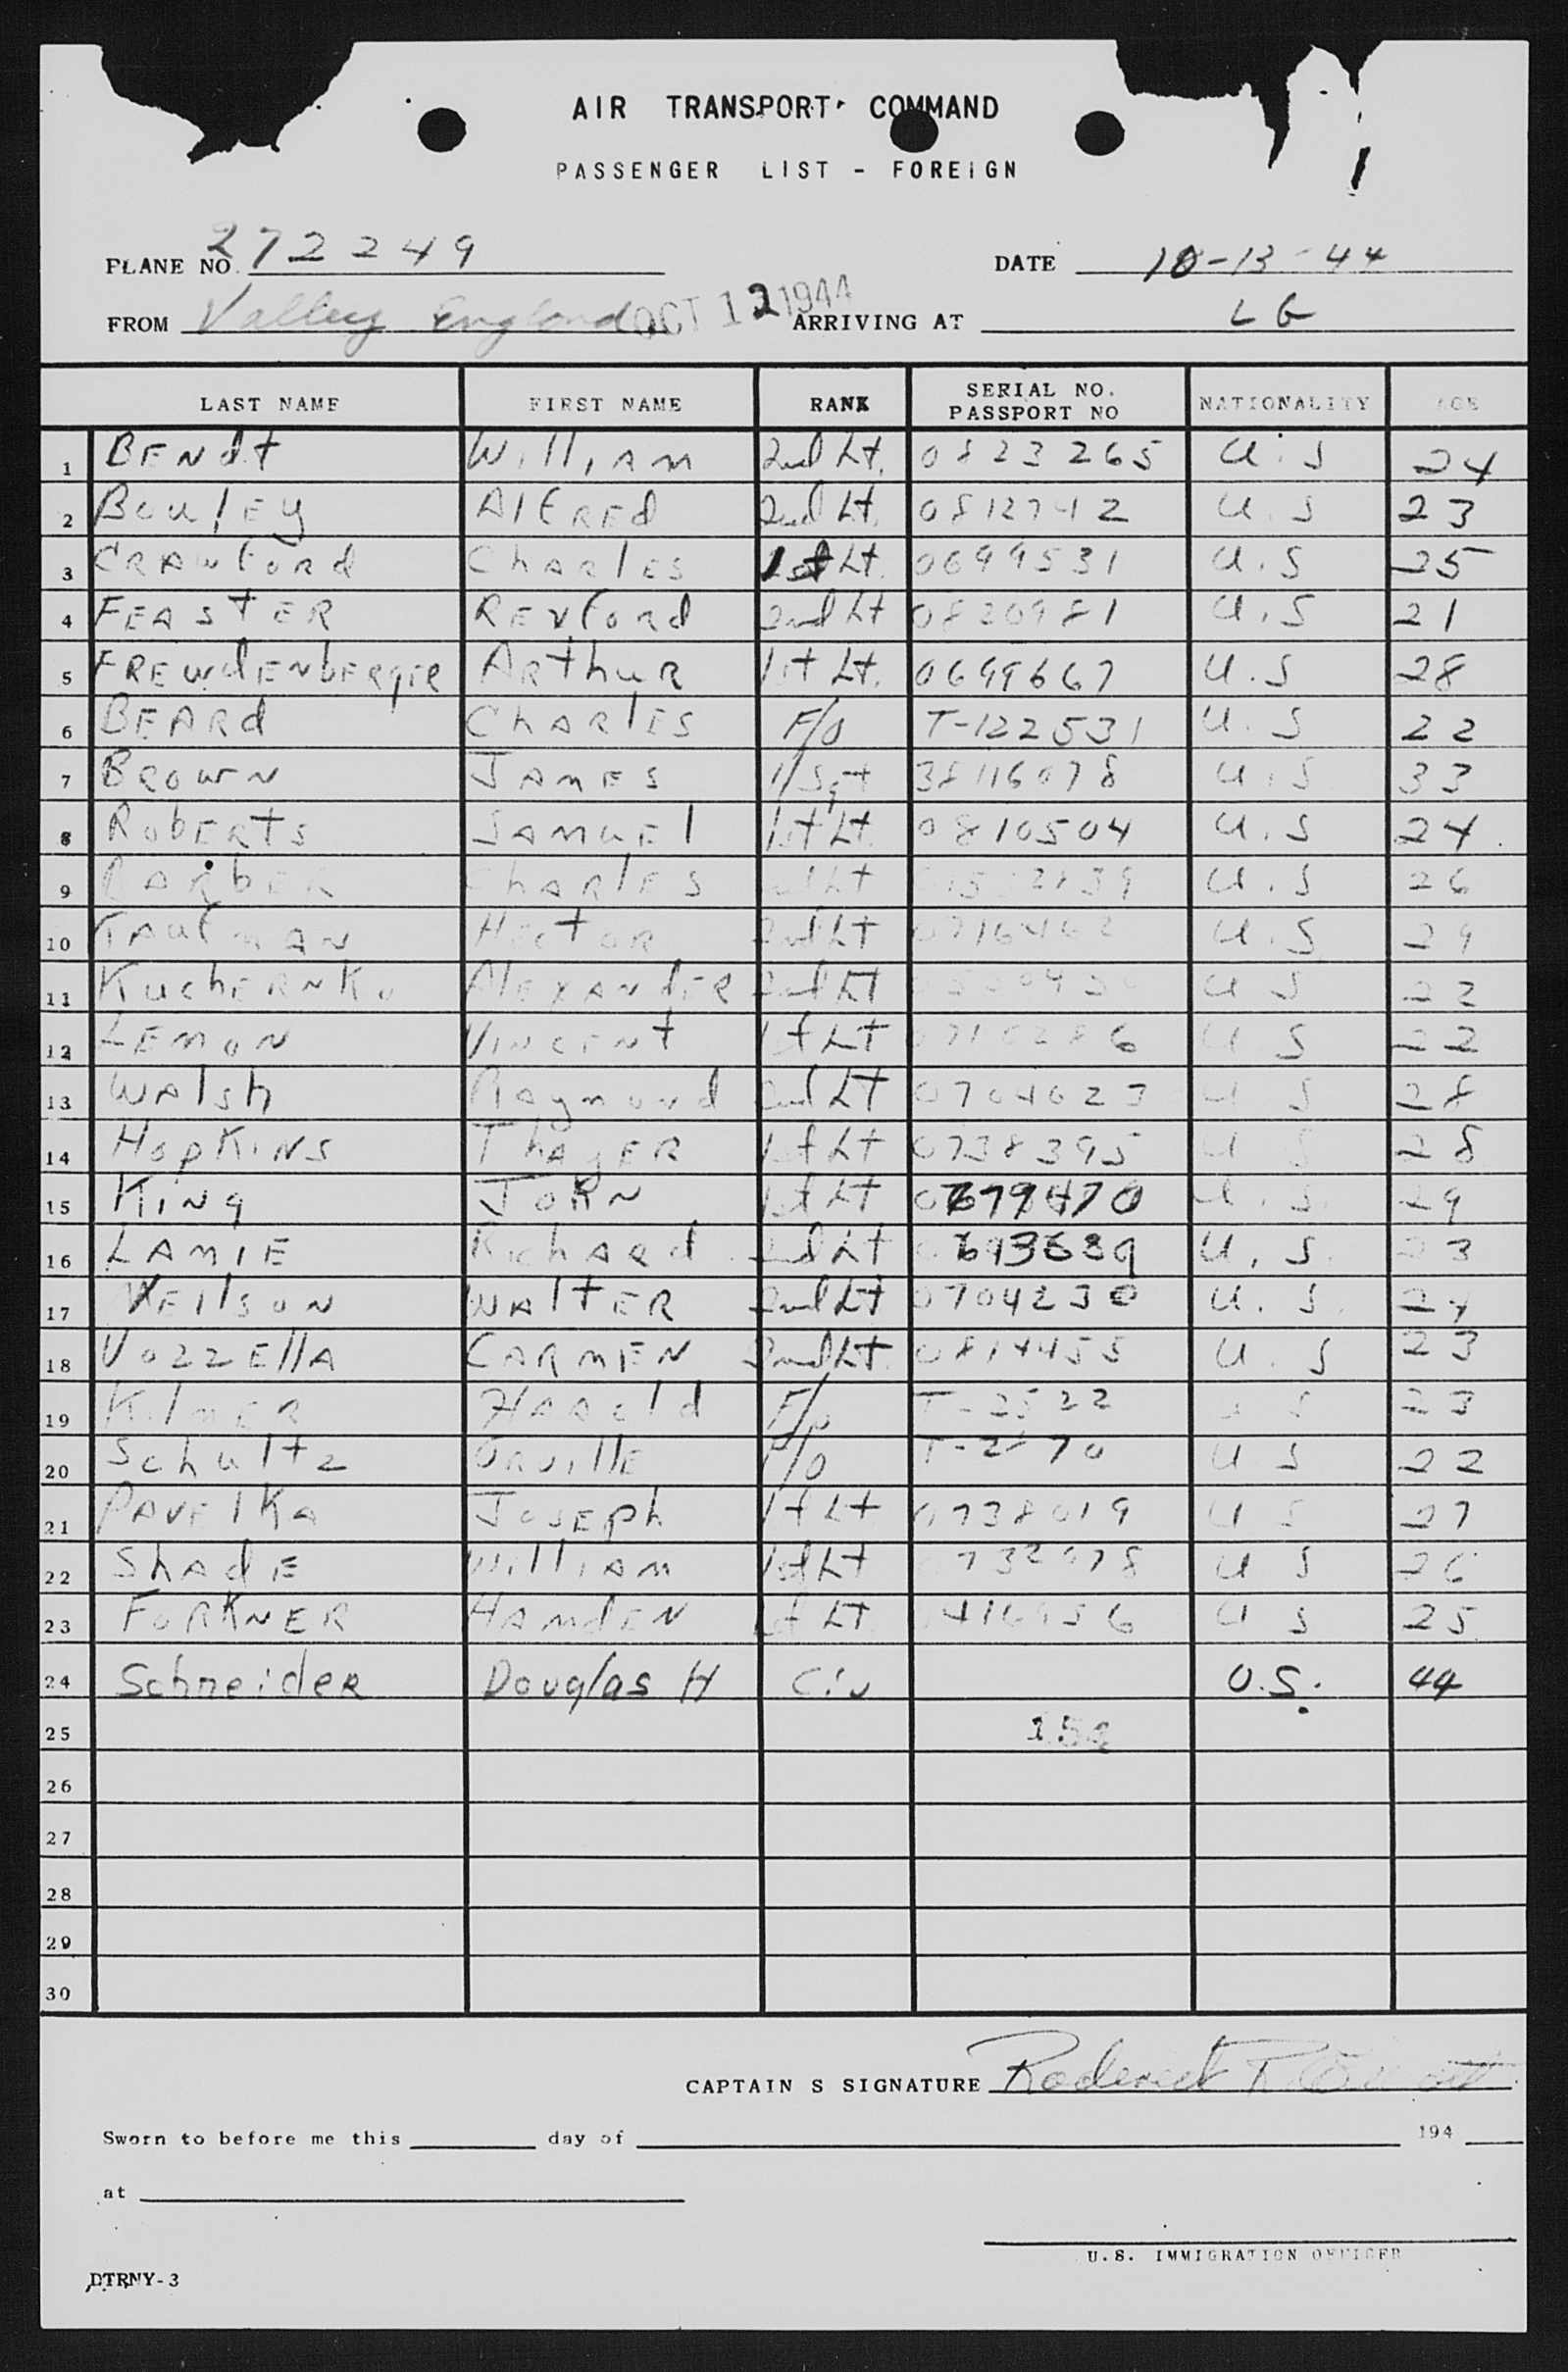 AIR TRANSPORT COMMAND
PASSENGER LIST - FOREIGN
PLANE NO. 272249 DATE 10-13-44
FROM Valley England OCT 12 1944 ARRIVING AT LG
LAST NAME FIRST NAME RANK SERIAL NO. PASSPORT NO NATIONALITY AGE
1 BENdt William 2nd Lt. 0823265 U.S 24
2 BouleY AlfREd 2nd Lt. 0812742 U.S 23
3 CRAwfoRd ChARlES 1st Lt. 0699531 U.S 25
4 FEAStER REXfoRd 2nd Lt 0820981 U.S 21
5 FREudENbERgER ARthuR 1st Lt. 0699667 U.S 28
6 BEARd ChARlES F/O T-122531 U.S 22
7 BROWN JAMES 1/Sgt 38116078 U.S 33
8 RobERtS SAMUEl 1st Lt. 0810504 U.S 24
9 BARbER ChARlES Lt U.S 26
10 HectoR 2nd Lt U.S 29
11 AlEXANdER 2nd Lt U S 22
12 LEMON VINCENt 1st Lt U S 22
13 WAlsh Raymond 2nd Lt 0704623 U S 28
14 HopKINS ThAyER 1st Lt 0738395 U S 28
15 KINg JOhN 1st Lt 0679470 U.S. 29
16 LAMIE RichARd 2nd Lt U.S. 23
17 NEIlSON WAltER 2nd Lt 0704230 U.S. 24
18 VozzEllA CARMEN 2nd Lt. 0814455 U.S 23
19 KilMER HARold F/O T-2522 U S 23
20 Schultz ORvillE F/O U S 22
21 PAVElKA JOSEph 1st Lt 0738019 U S 27
22 ShAdE William 1st Lt U S 26
23 FORKNER HAMdEN 1st Lt U S 25
24 SchneideR Douglas H Civ U.S. 44
25
26
27
28
29
30
CAPTAIN S SIGNATURE
Sworn to before me this day of 194
at
U.S. IMMIGRATION OFFICER
DTRNY-3